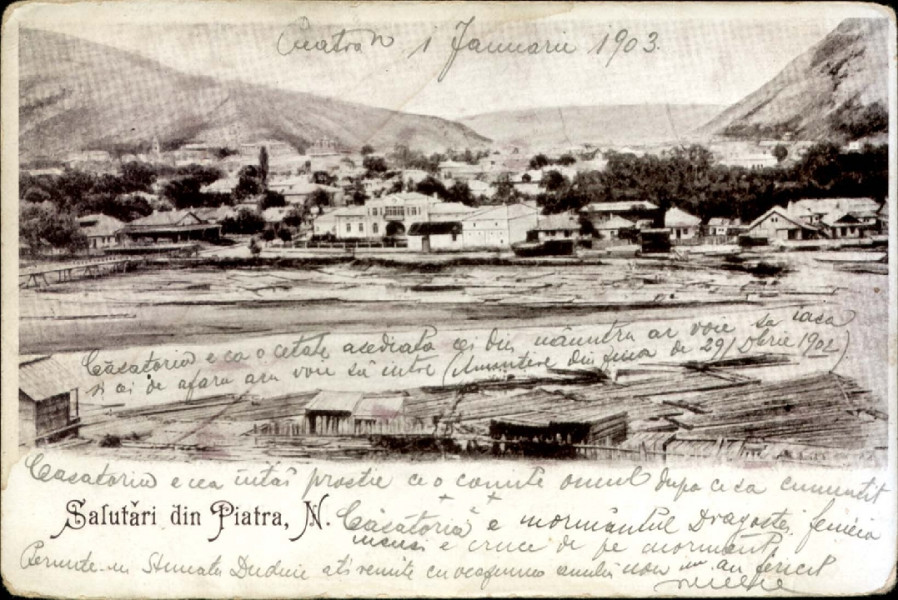 Piatra N 1 Januarie 1903.
Căsătoria e ca o cetate asediată cei din năuntru ar voi sa iasa
si cei de afara aru voi sa intre (Amintire din ziua de 29 1902)
Casatoria e cea intâi prostie ce o comite omul dupa ce sa cumintit
Salutări din Piatra, N.
Căsătoria e mormântul Dragostei, femeia
insusi e cruce de pe mormânt.
Stimata Duduie a ti remite cu ocasiunea anului nou un an fericit